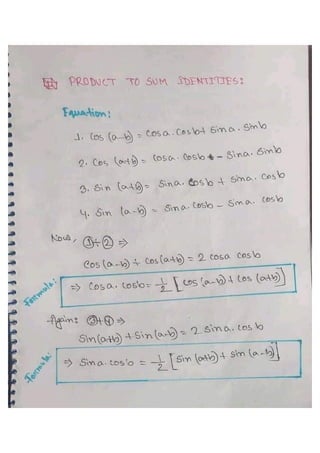 PRODUCT TO SUM IDENTITIES:
Equation:
1. Cos (a-b) = Cosa. Cosb + Sina. Sinb
2. Cos (a+b) = Cosa. Cosb - Sina. Sinb
3. Sin (a+b) = Sina. Cosb + Sina. Cosb
4. Sin (a-b) = Sina. Cosb - Sina. Cosb
Now, ①+② ⇒
Cos (a-b) + Cos (a+b) = 2 Cosa Cosb
Formula: ⇒ Cosa. Cosb = 1/2 [Cos (a-b) + Cos (a+b)]
Again: ③+④ ⇒
Sin(a+b) + Sin (a-b) = 2 Sina. Cosb
Formula: ⇒ Sina. Cosb = 1/2 [Sin (a+b) + Sin (a-b)]